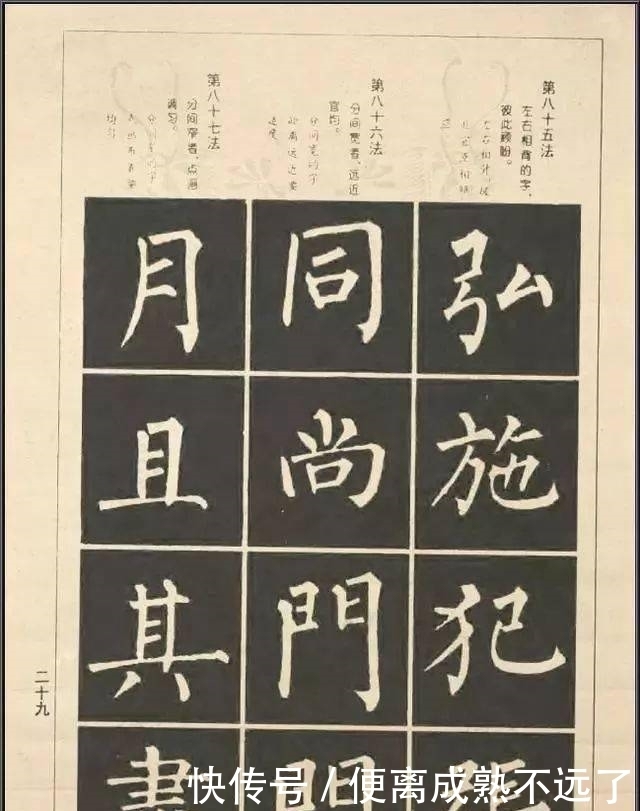 第八十五法
左右相背的字、
彼此顾盼。
弘
施
犯
第八十六法
分间宽者、远近
宜均。
同
尚
門
第八十七法
分间窄者、点画
调匀。
月
且
其
書
二十九
快传号 / 便离成熟不远了